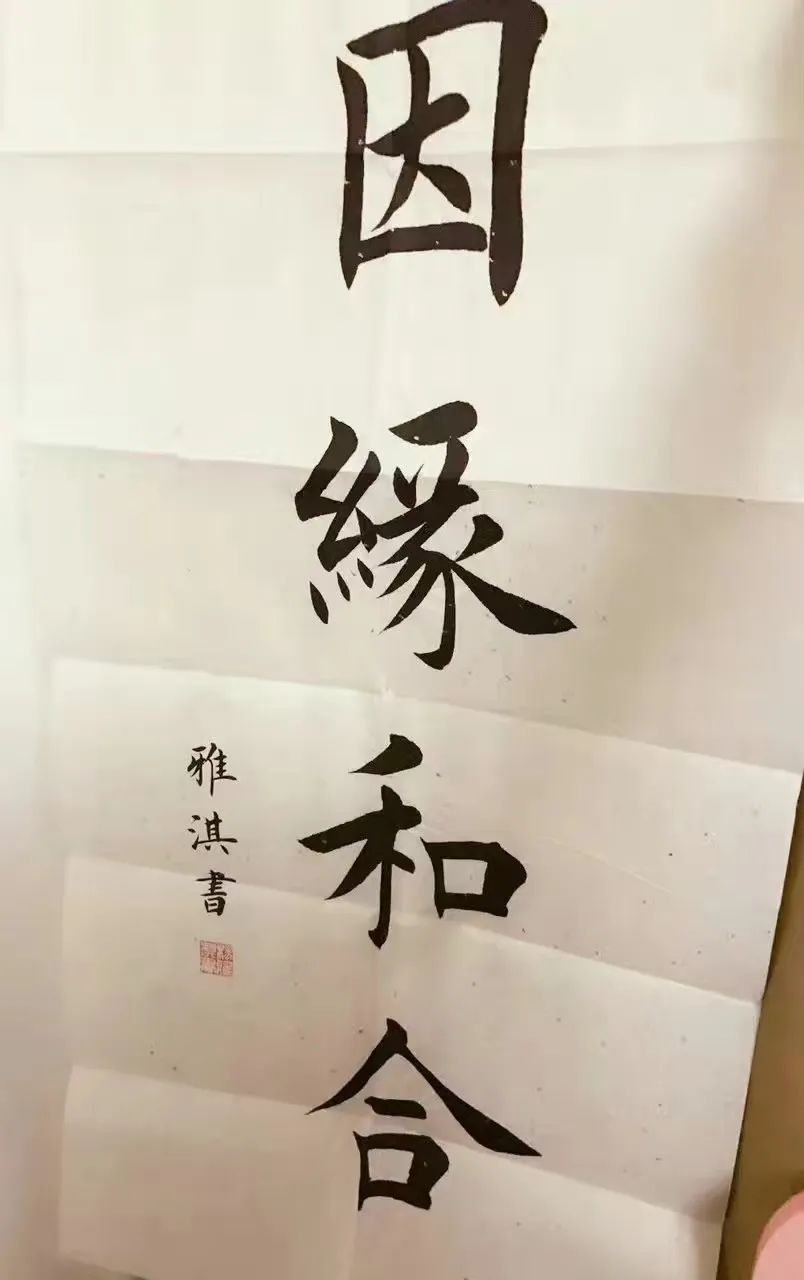 因緣和合
雅淇書